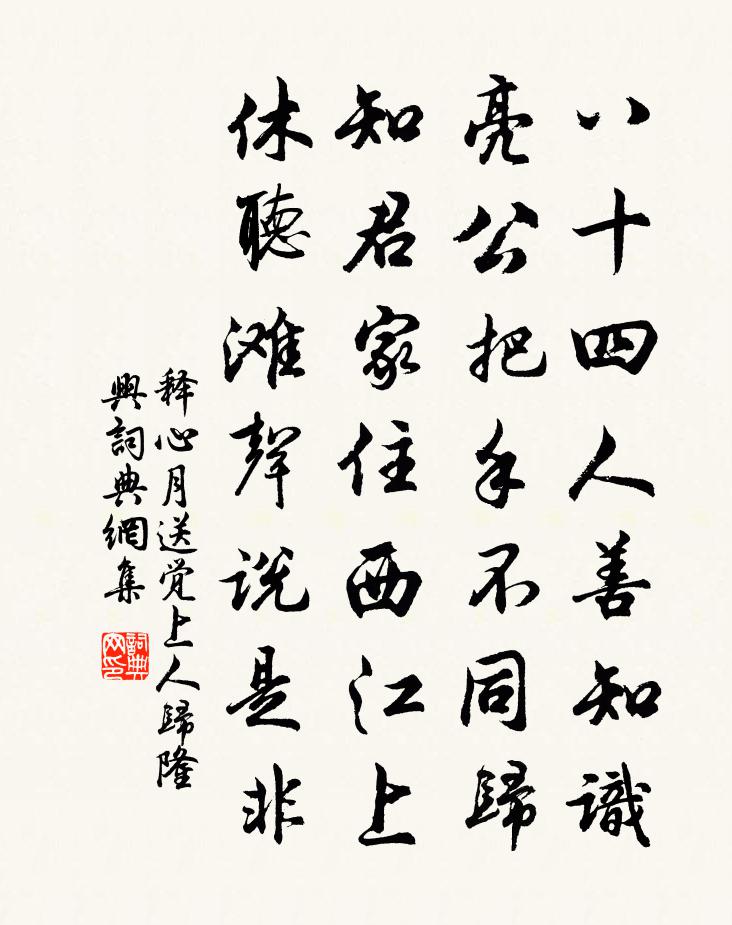 八十四人善知識
亮公把手不同歸
知君家住西江上
休聽滩聲说是非
释心月送觉上人歸隆
興詞典網集
詞典
网印